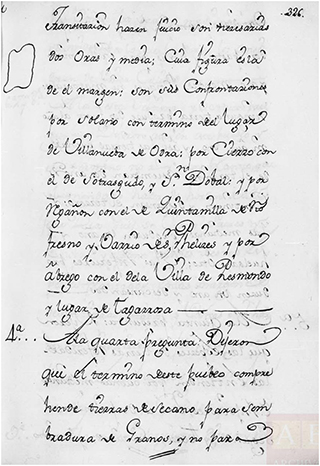 326.
Transitarlon hacen juicio son necesarias
dos Oras y media; Cuia figura es la
de el margen: son sus Confrontaciones
por solano con termino del lugar
de Villanueba de Odra: por Cierzo con
el de Sotrasgudo, y Sn. Dobal: y por
Regañon con el de Quintanilla de Rio
fresno y Varrio de Sn. Phelizes y por
Abrego con el dela Villa de Resmondo
y lugar de Tagarrosa
4ª... Ala quarta pregunta: Dijeron
que el termino deste pueblo compre
hende tierras de secano, para sem
bradura de Granos, y no para